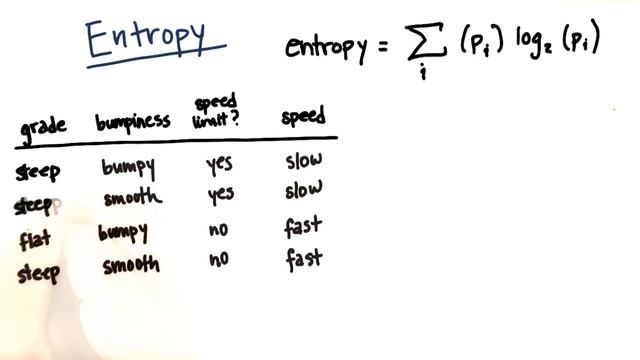 Entropy
entropy = ∑i (pi) log2 (pi)
grade bumpiness speed limit? speed
steep bumpy yes slow
steep smooth yes slow
flat bumpy no fast
steep smooth no fast